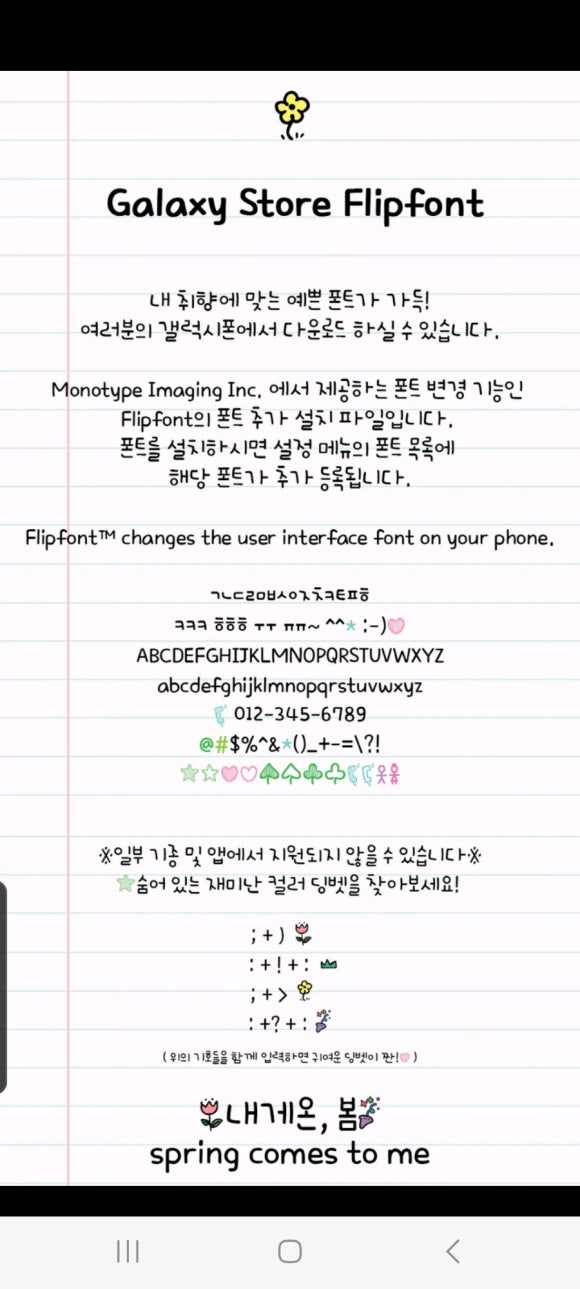 Galaxy Store Flipfont
내 취향에 맞는 예쁜 폰트가 가득!
여러분의 갤럭시폰에서 다운로드 하실 수 있습니다.
Monotype Imaging Inc. 에서 제공하는 폰트 변경 기능인
Flipfont의 폰트 추가 설치 파일입니다.
폰트를 설치하시면 설정 메뉴의 폰트 목록에
해당 폰트가 추가 등록됩니다.
Flipfont™ changes the user interface font on your phone.
ㄱㄴㄷㄹㅁㅂㅅㅇㅈㅊㅋㅌㅍㅎ
ㅋㅋㅋ ㅎㅎㅎ ㅜㅜ ㅠㅠ~ ^^* :-)♥
ABCDEFGHIJKLMNOPQRSTUVWXYZ
abcdefghijklmnopqrstuvwxyz
012-345-6789
@#$%^&*()_+-=\?!
★☆♥♡♠♤♣♧
※일부 기종 및 앱에서 지원되지 않을 수 있습니다※
★숨어 있는 재미난 컬러 딩벳을 찾아보세요!
;+)
:+!+:
;+>
:+?+:
(위의 기호들을 함께 입력하면 귀여운 딩벳이 짠!♥)
내게온, 봄
spring comes to me